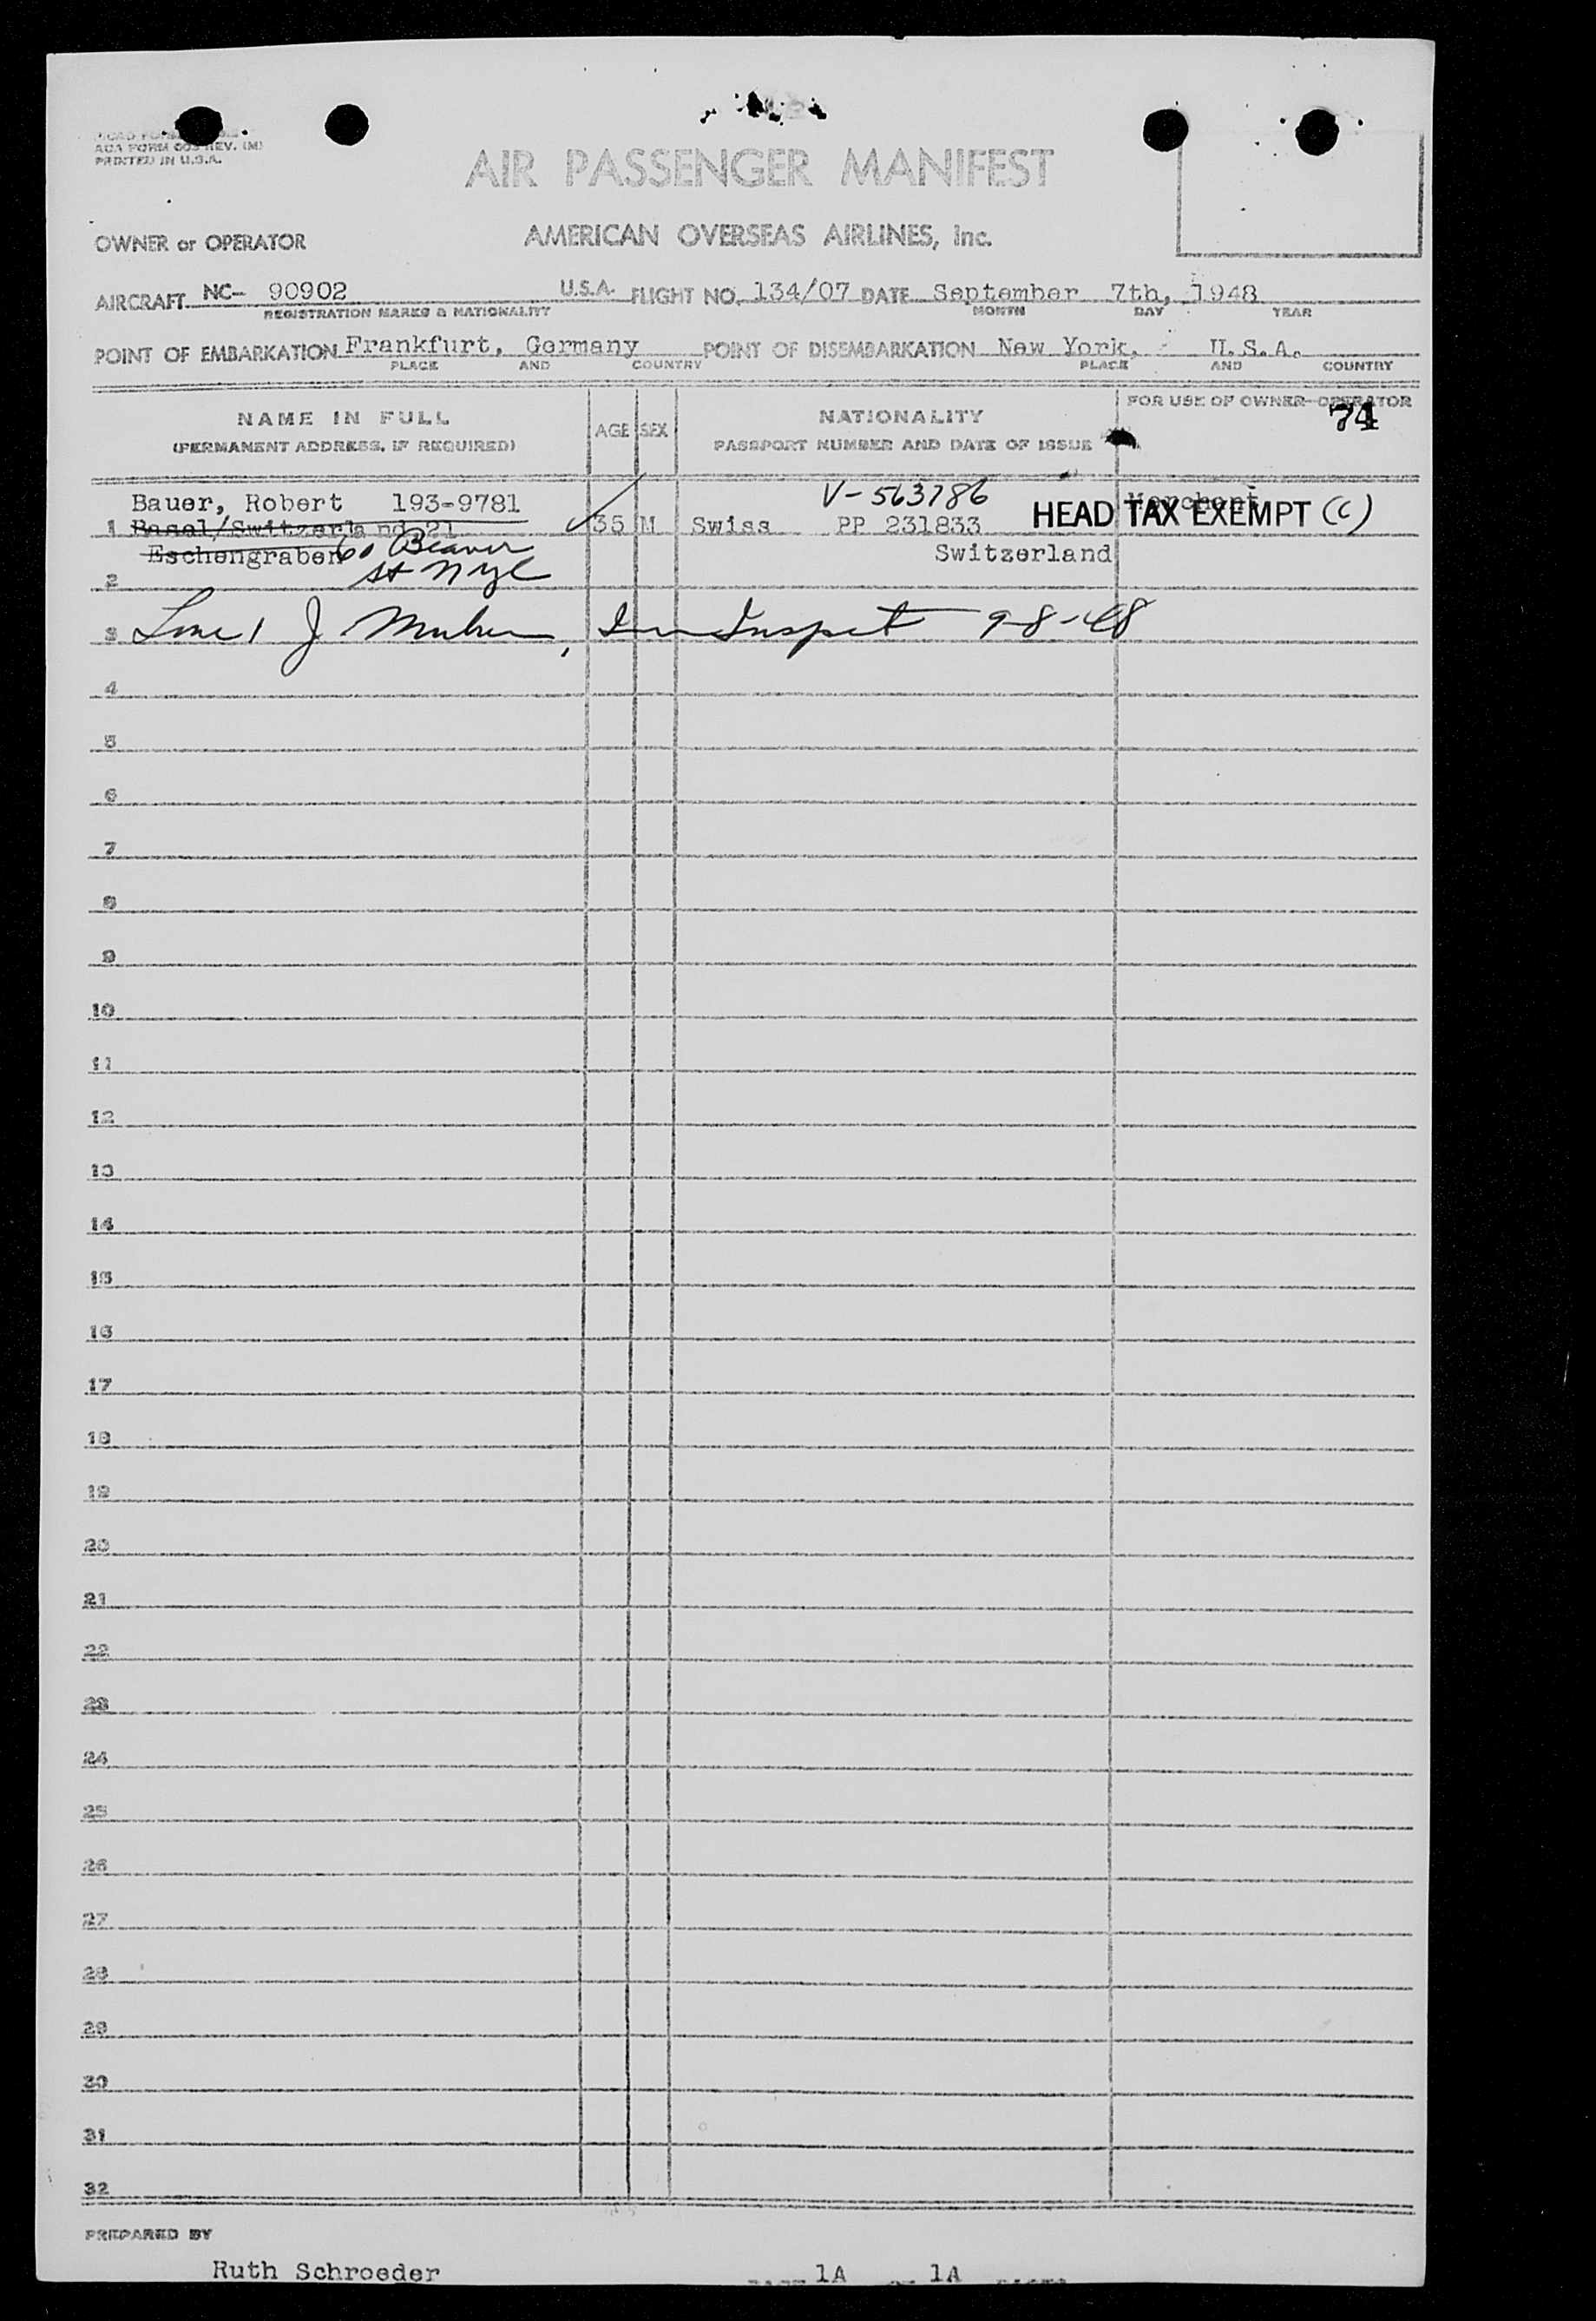 AOA FORM 003 REV. (M)
PRINTED IN U.S.A.
AIR PASSENGER MANIFEST
OWNER or OPERATOR AMERICAN OVERSEAS AIRLINES, Inc.
AIRCRAFT NC- 90902 U.S.A. FLIGHT NO. 134/07 DATE September 7th, 1948
REGISTRATION MARKS & NATIONALITY MONTH DAY YEAR
POINT OF EMBARKATION Frankfurt, Germany POINT OF DISEMBARKATION New York, U.S.A.
PLACE AND COUNTRY PLACE AND COUNTRY
NAME IN FULL AGE SEX NATIONALITY FOR USE OF OWNER OPERATOR
(PERMANENT ADDRESS, IF REQUIRED) PASSPORT NUMBER AND DATE OF ISSUE 74
Bauer, Robert 193-9781 V-563786 Merchant
1 Basel/Switzerland 21 35 M Swiss PP 231833 HEAD TAX EXEMPT (C)
Eschengraben 60 Beaver Switzerland
2 St NYC
3 Line 1 J 9-8-48
4
5
6
7
8
9
10
11
12
13
14
15
16
17
18
19
20
21
22
23
24
25
26
27
28
29
30
31
32
PREPARED BY
Ruth Schroeder 1A 1A